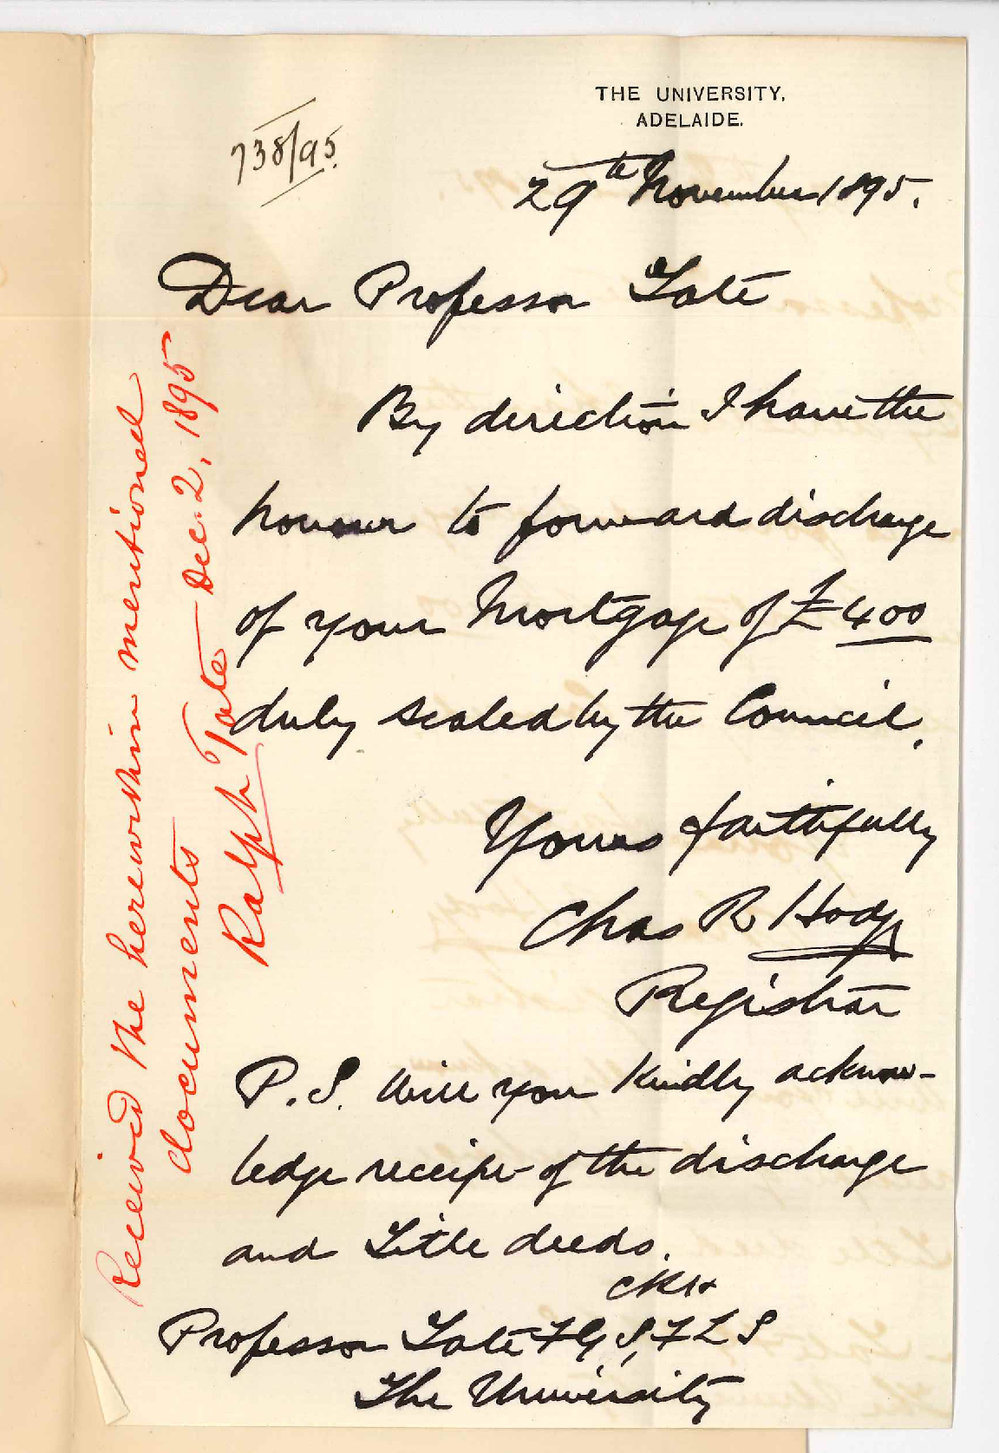 THE UNIVERSITY,
ADELAIDE.
738/95.
29th November 1895.
Dear Professor Tate
By direction I have the
honour to forward discharge
of your Mortgage of £400
duly sealed by the Council.
Yours faithfully
Chas R Hodge
Registrar
P.S. Will you kindly acknow-
ledge receipt of the discharge
and Title deeds.
CRH
Professor Tate FGS, FLS
The University
Received the herewithin mentioned
documents
Ralph Tate Dec. 2, 1895